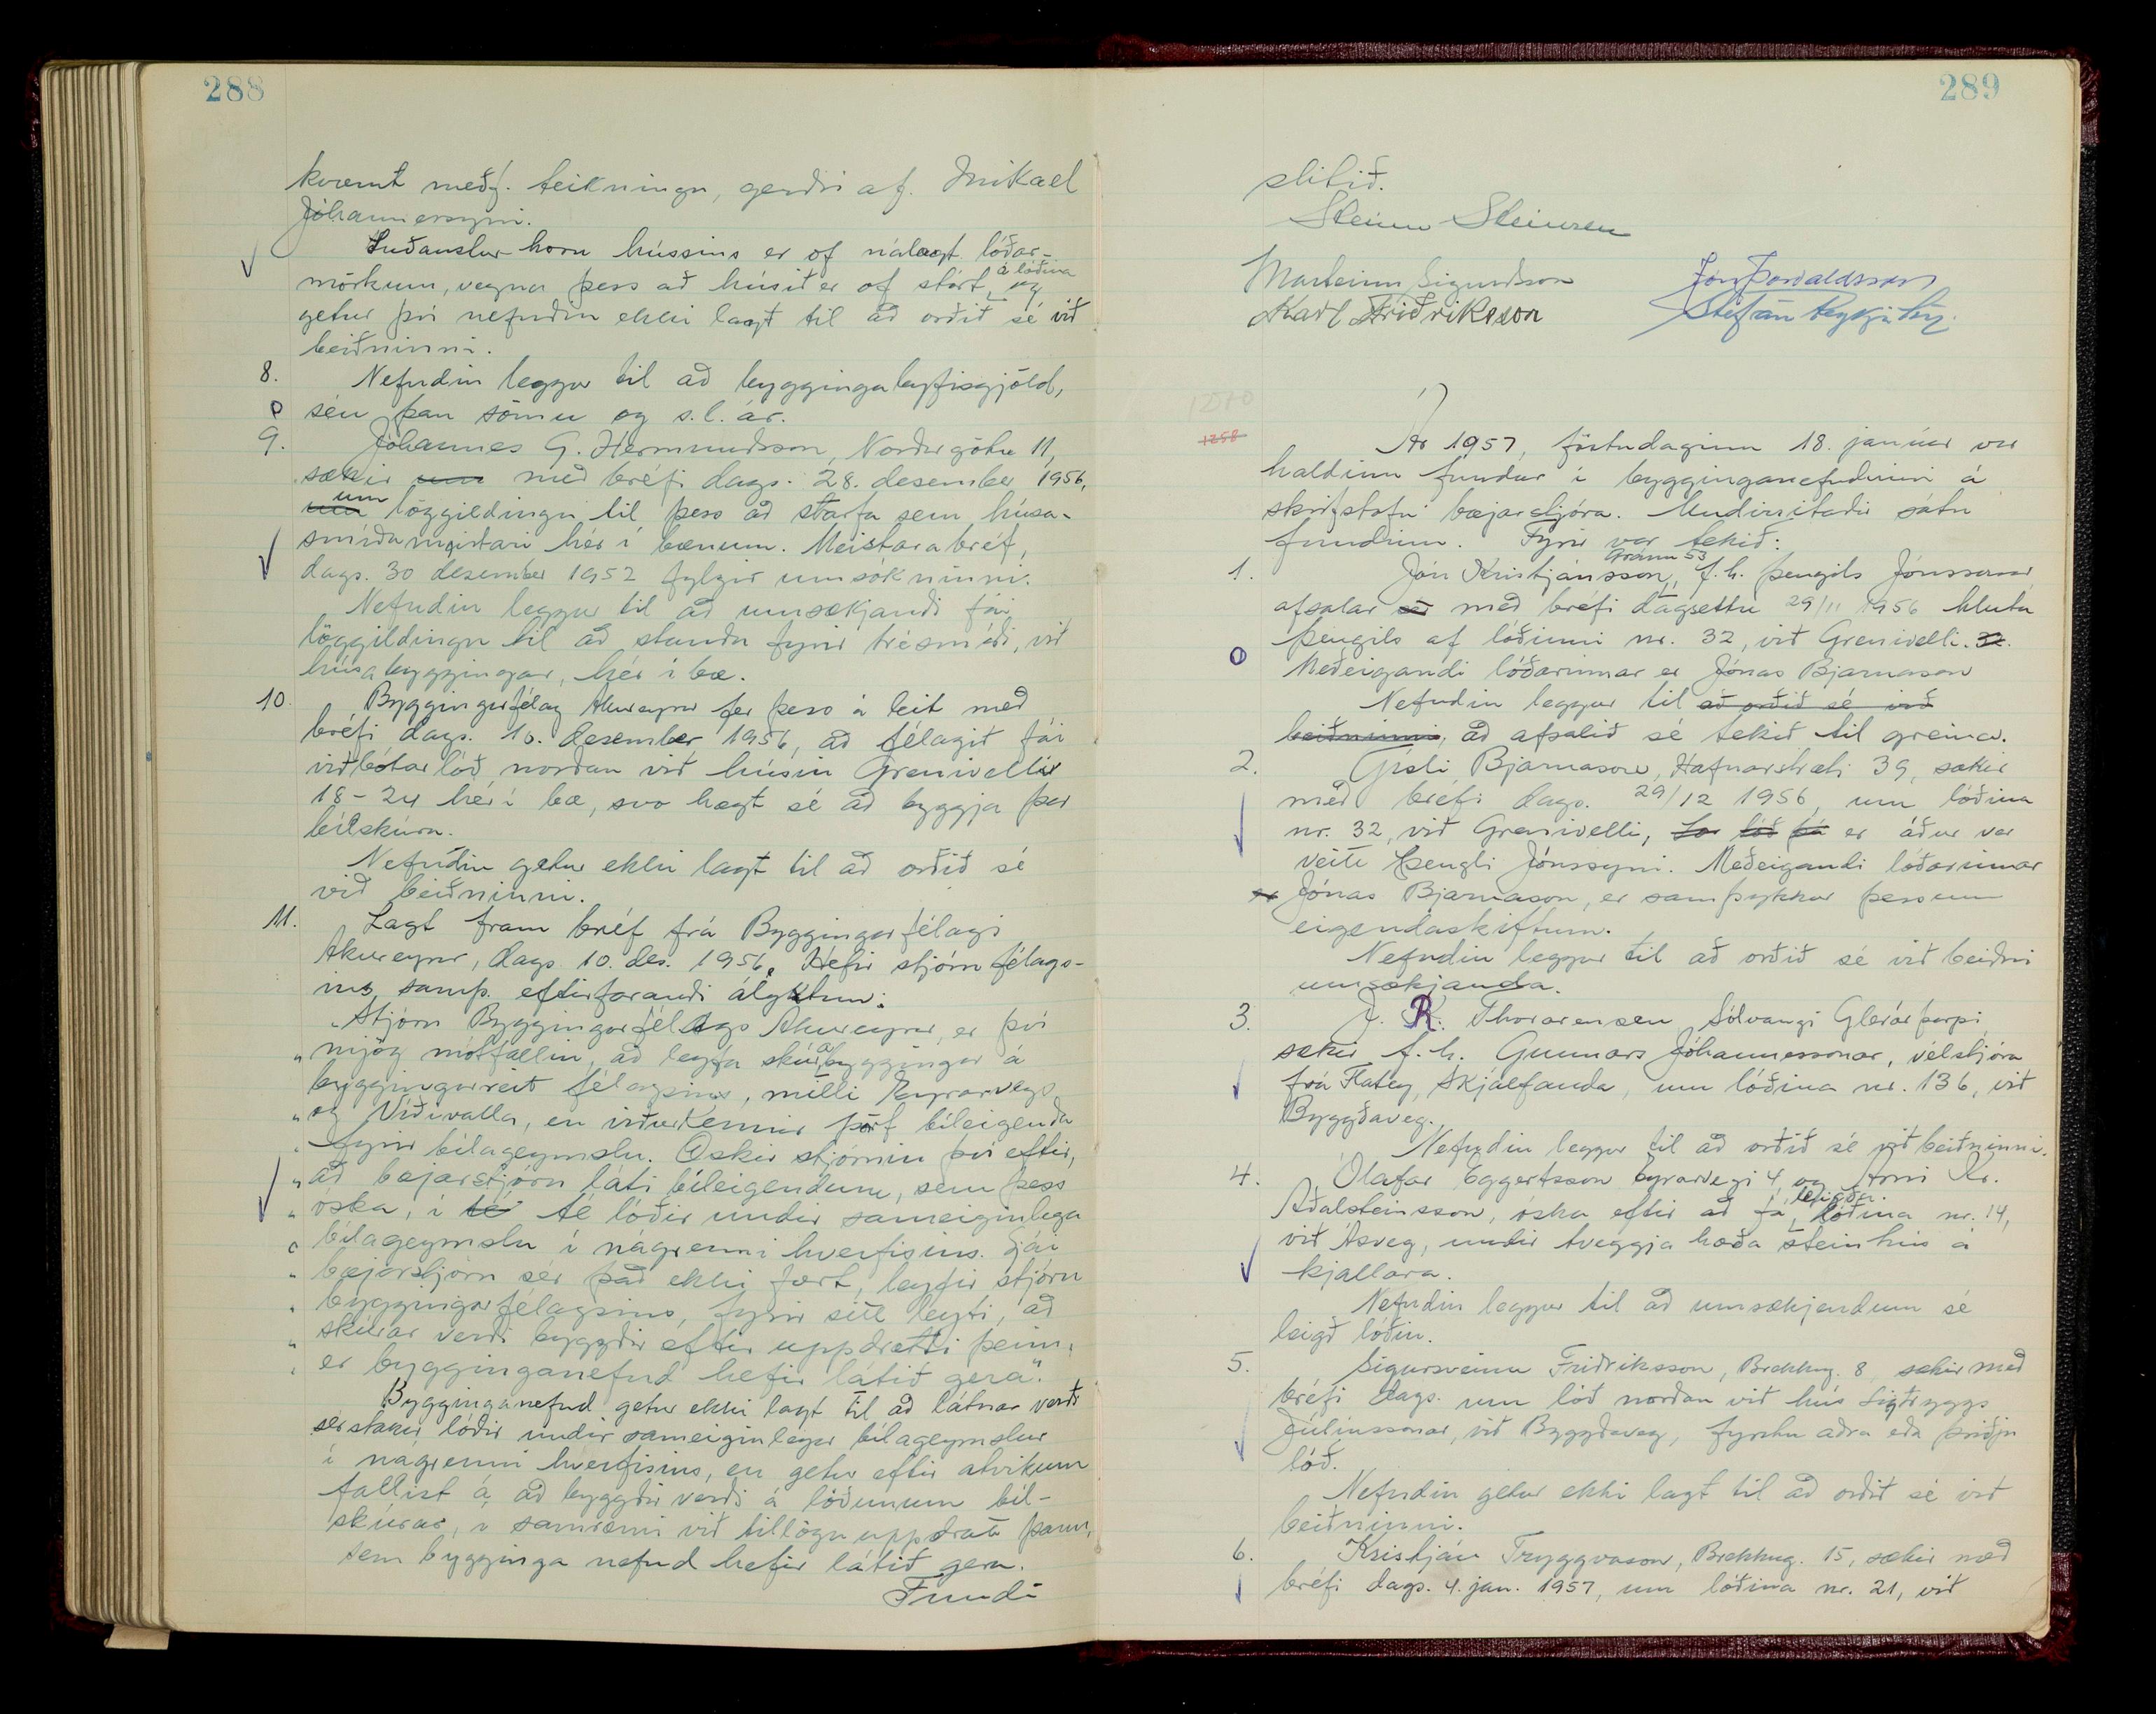 288
kvæmt meðf. teikningu, gerðri af Mikael
Jóhannessyni.
Suðaustur horn hússins er of nálægt lóðar-
mörkum, vegna þess að húsið er of stórt á lóðina og
getur því nefndin ekki lagt til að orðið sé við
beiðninni.
8. Nefndin leggur til að byggingaleyfisgjöld,
séu þau sömu og s.l. ár.
9. Jóhannes G. Hermundsson, Norðurgötu 11,
sækir um með bréfi dags. 28. desember 1956,
um um löggildingu til þess að starfa sem húsa-
smíðameistari hér í bænum. Meistarabréf,
dags. 30 desember 1952 fylgir umsókninni.
Nefndin leggur til að umsækjandi fái
löggildingu til að standa fyrir trésmíði, við
húsabyggingar, hér í bæ.
10. Byggingarfélag Akureyrar fer þess á leit með
bréfi dags. 10. desember 1956, að félagið fái
viðbótarlóð norðan við húsin Grenivellir
18-24 hér í bæ, svo hægt sé að byggja þar
bílskúra.
Nefndin getur ekki lagt til að orðið sé
við beiðninni.
11. Lagt fram bréf frá Byggingarfélagi
Akureyrar, dags. 10. des. 1956. Hefir stjórn félags-
ins samþ. eftirfarandi ályktun:
"Stjórn Byggingarfélags Akureyrar, er því
" mjög mótfallin, að leyfa skúrabyggingar á
byggingarreit félagsins, milli Eyrarvegs
" og Víðivalla, en viðurkennir þörf bíleigenda
" fyrir bílageymslu. Óskir stjórnin því eftir,
" að bæjarstjórn láti bíleigendum, sem þess
" óska, í té té lóðir undir sameiginlega
" bílageymslu í nágrenni hverfisins. Sjái
" bæjarstjórn sér það ekki fært, leyfir stjórn
" byggingarfélagsins, fyrir sitt leyti, að
" skúrar verði byggðir eftir uppdrætti þeim,
" er bygginganefnd hefir látið gera".
Bygginganefnd getur ekki lagt til að látnar verði
sérstakir lóðir undir sameiginlegar bílageymslur
í nágrenni hverfisins, en getur eftir atvikum
fallist á að byggðir verði á lóðunum bíl-
skúrar, í samræmi við tillöguuppdrátt þann,
sem bygginga nefnd hefir látið gera.
Fundi
289
slitið.
Steinn Steinsen
Marteinn Sigurðsson Jón Þorvaldsson
Karl Friðriksson Stefán Reykjalín
1258
Ár 1957, föstudaginn 18. janúar var
haldinn fundur í bygginganefndinni á
skrifstofu bæjarstjóra. Undirritaðir sátu
fundinn. Fyrir var tekið:
1. Jón Kristjánsson, Gránu 53 f.h. Þengils Jónssonar
afsalar sér með bréfi dagsettu 29/11 1956 hluta
Þengils af lóðinni nr. 32, við Grenivelli.
Meðeigandi lóðarinnar er Jónas Bjarnason
Nefndin leggur til að orðið sé við
beiðninni, að afsalið sé tekið til greina.
2. Gísli Bjarnason, Hafnarstræti 39, sækir
með bréfi dags. 29/12 1956, um lóðina
nr. 32, við Grenivelli, lóð þá er áður var
veitt Þengli Jónssyni. Meðeigandi lóðarinnar
Jónas Bjarnason, er samþykkur þessum
eigendaskiftum.
Nefndin leggur til að orðið sé við beiðni
umsækjanda.
3. J. R. Thorarensen Sólvangi Glerárþorpi
sækir f.h. Gunnars Jóhannessonar, vélstjóra
frá Flatey, Skjálfanda, um lóðina nr. 136, við
Byggðaveg.
Nefndin leggur til að orðið sé við beiðninni.
4. Ólafur Eggertsson Eyrarvegi 4 og Árni Kr.
Aðalsteinsson, óska eftir að fá leigða lóðina nr. 14,
við Ásveg, undir tveggja hæða steinhús á
kjallara.
Nefndin leggur til að umsækjendum sé
leigð lóðin.
5. Sigursveinn Friðriksson, Brekkug. 8, sækir með
bréfi dags. um lóð norðan við hús Sigtryggs
Júlíussonar, við Byggðaveg, fyrstu aðra eða þriðju
lóð.
Nefndin getur ekki lagt til að orðið sé við
beiðninni.
6. Kristján Tryggvason, Brekkug. 15, sækir með
bréfi dags. 4. jan. 1957, um lóðina nr. 21, við